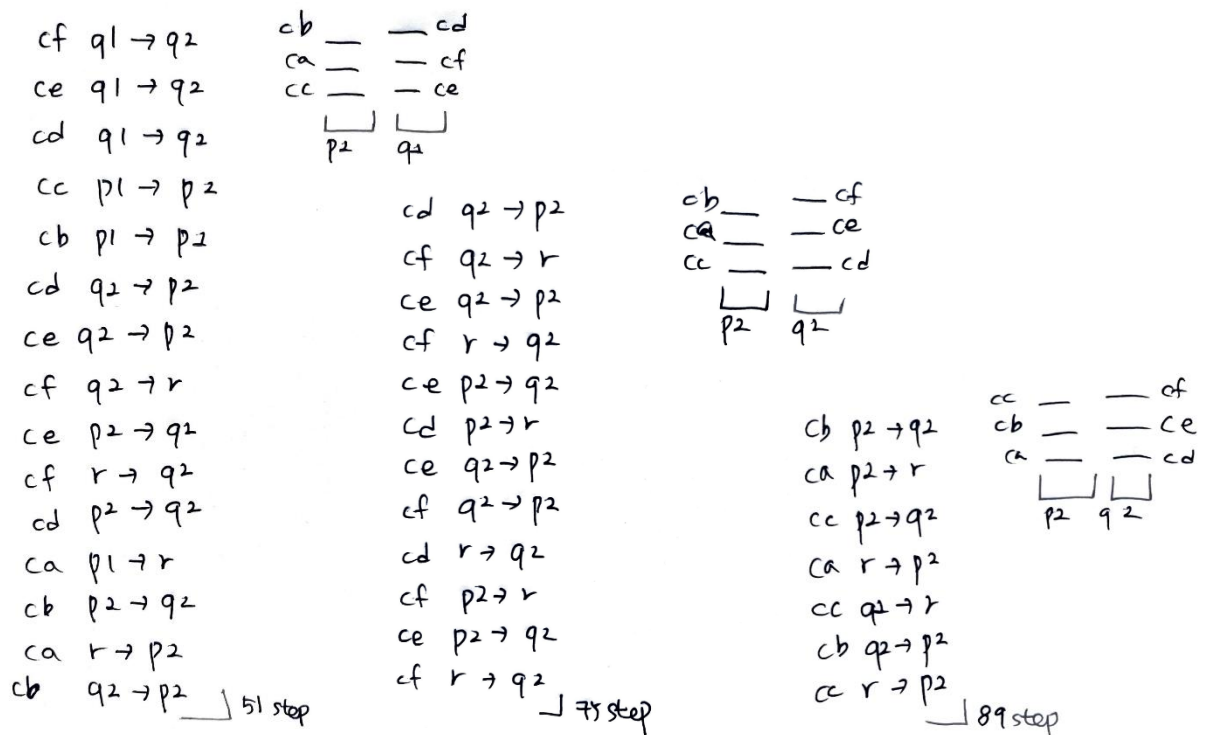 cf q1 → q2
ce q1 → q2
cd q1 → q2
cc p1 → p2
cb p1 → p2
cd q2 → p2
ce q2 → p2
cf q2 → r
ce p2 → q2
cf r → q2
cd p2 → q2
ca p1 → r
cb p2 → q2
ca r → p2
cb q2 → p2
51 step
cb cd
ca cf
cc ce
p2 q2
cd q2 → p2
cf q2 → r
ce q2 → p2
cf r → q2
ce p2 → q2
cd p2 → r
ce q2 → p2
cf q2 → p2
cd r → q2
cf p2 → r
ce p2 → q2
cf r → q2
75 step
cb cf
ca ce
cc cd
p2 q2
cb p2 → q2
ca p2 → r
cc p2 → q2
ca r → p2
cc q2 → r
cb q2 → p2
cc r → p2
89 step
cc cf
cb ce
ca cd
p2 q2